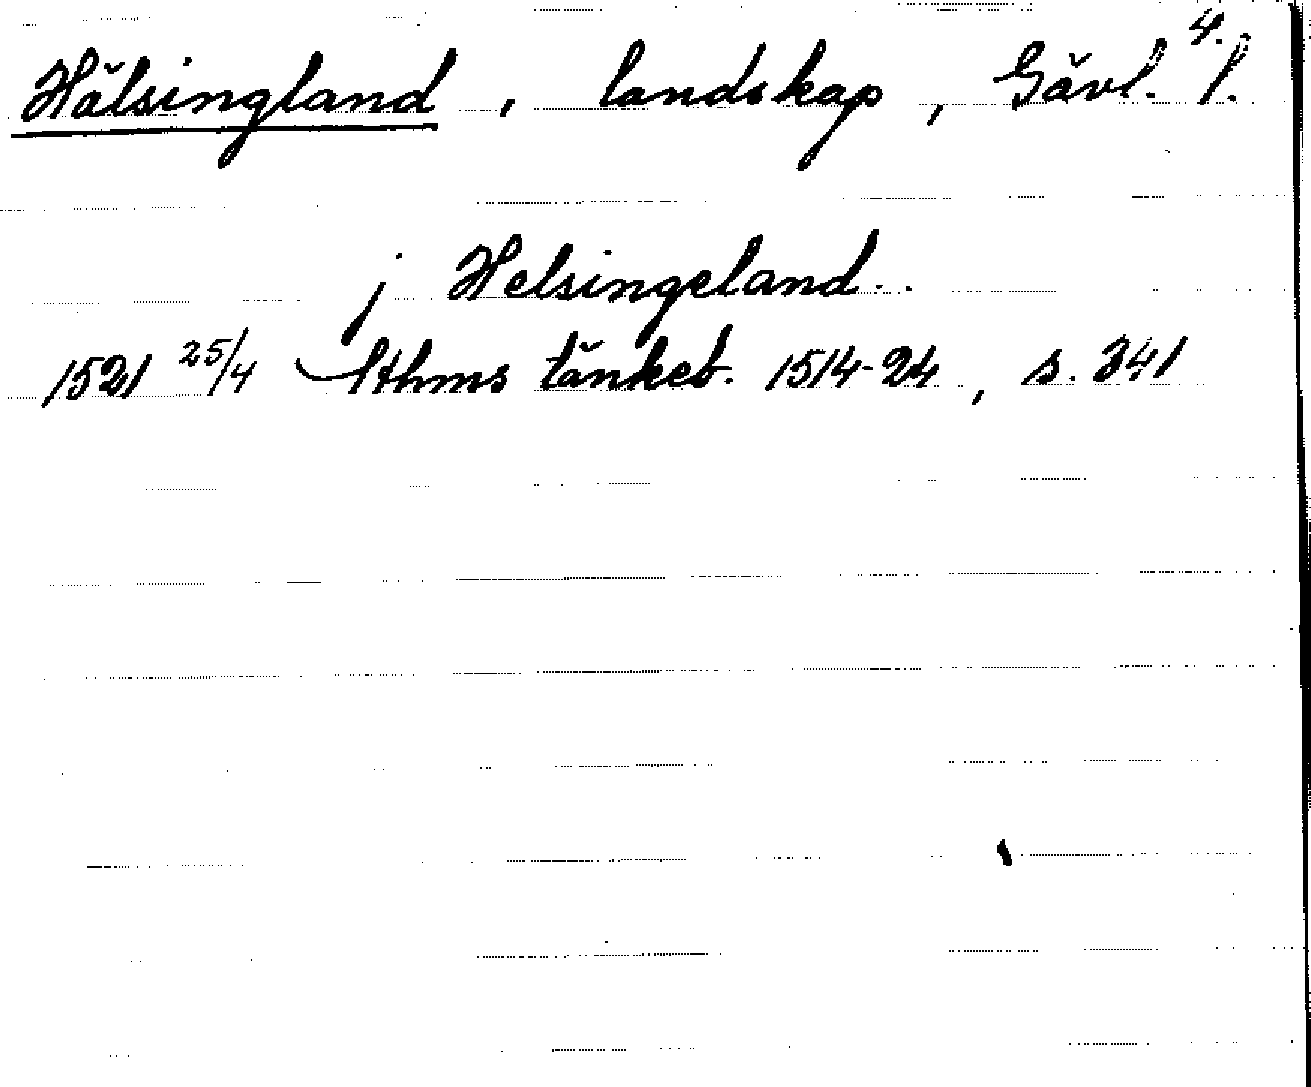 4.
Hälsingland, landskap, Gävl. l.
j Helsingeland.
1521 25/4 Sthms tänkeb. 1514-24, s. 341